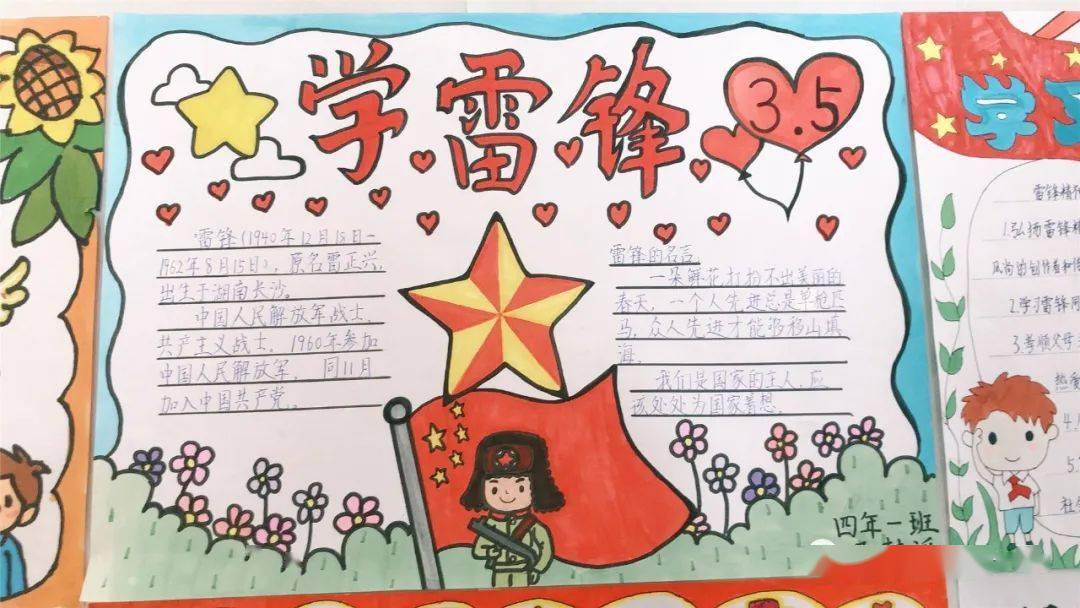 学雷锋
3.5
雷锋(1940年12月18日-
1962年8月15日),原名雷正兴,
出生于湖南长沙。
中国人民解放军战士,
共产主义战士,1960年参加
中国人民解放军,同11月
加入中国共产党。
雷锋的名言
一朵鲜花打扮不出美丽的
春天,一个人先进总是单枪匹
马,众人先进才能够移山填
海。
我们是国家的主人,应
该处处为国家着想。
四年一班
学习
雷锋精
1.弘扬雷锋精
2.学习雷锋同
3.孝顺父母
热爱
4.
5.
社